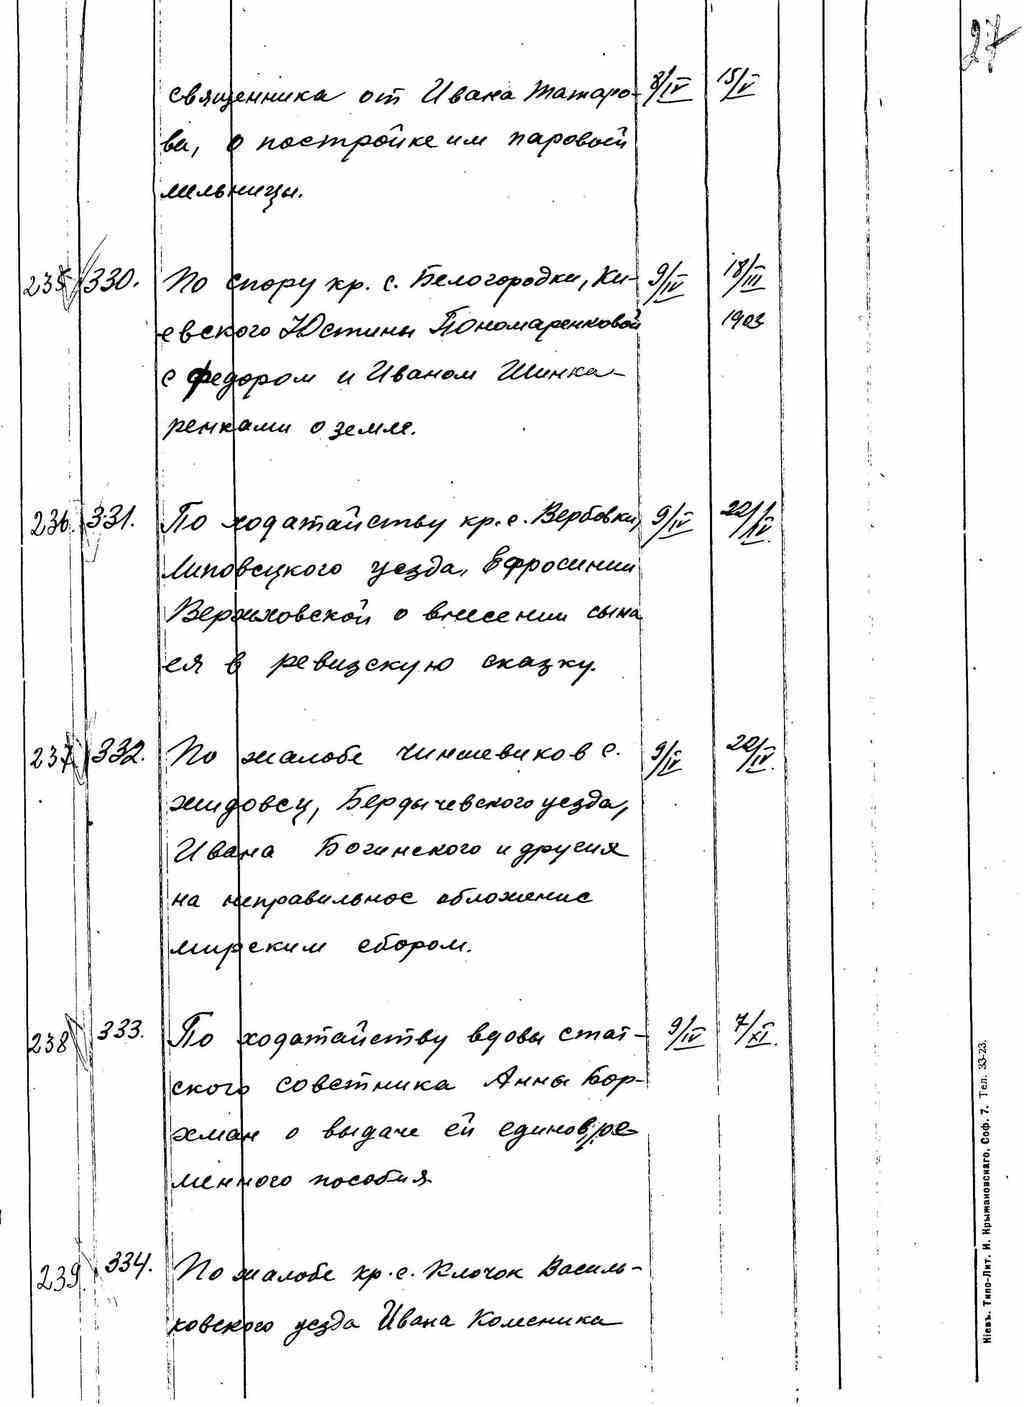 27
священника от Ивана Татаро- 8/IV 15/V
ва, о постройке им паровой
мельницы.
235 330. По спору кр. с. Белогородки, Ки- 9/IV 18/III
евского Юстины Пономаренковой 1903
с Федором и Иваном Шинка-
ренками о земле.
236. 331. По ходатайству кр. с. Вербовки, 9/IV 22/IV.
Липовецкого уезда, Ефросинии
Вержховской о внесении сына
ея в ревизскую сказку.
237 332. По жалобе чиншевиков с. 9/IV 20/IV.
Жидовец, Бердычевского уезда,
Ивана Богинского и другия
на неправильное обложение
мирским сбором.
238 333. По ходатайству вдовы стат- 9/IV 7/XI.
ского советника Анны Бор-
хман о выдаче ей единовре-
менного пособия
239. 334. По жалобе кр. с. Клочок Василь-
ковского уезда Ивана Коменика
Кіевъ. Типо-Лит. И. Крыжановскаго, Соф. 7. Тел. 33-23.